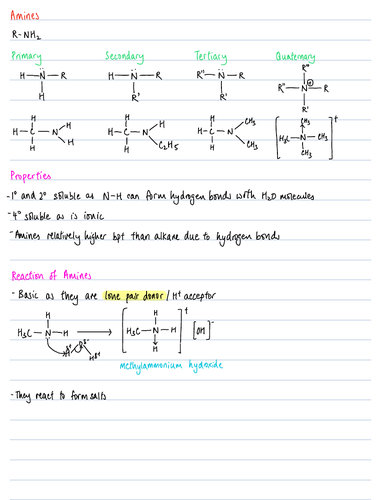 Amines
R-NH₂
Primary Secondary Tertiary Quaternary
H—N—R H—N—R R"—N—R R"—N⊕—R
H R' R' R" R'
H H—C—N H H H
H H—C—N H C₂H₅ H
H H—C—N CH₃ CH₃ H
[ CH₃ H₃C—N—CH₃ CH₃ ]⁺
Properties
-1° and 2° soluble as N-H can form hydrogen bonds with H₂O molecules
-4° soluble as is ionic
-Amines relatively higher bpt than alkane due to hydrogen bonds
Reaction of Amines
- Basic as they are lone pair donor / H⁺ acceptor
H H
H₃C—N—H → [ H₃C—N—H ]⁺ [OH]⁻
Hδ+ Oδ- Hδ+ H
methylammonium hydroxide
- They react to form salts